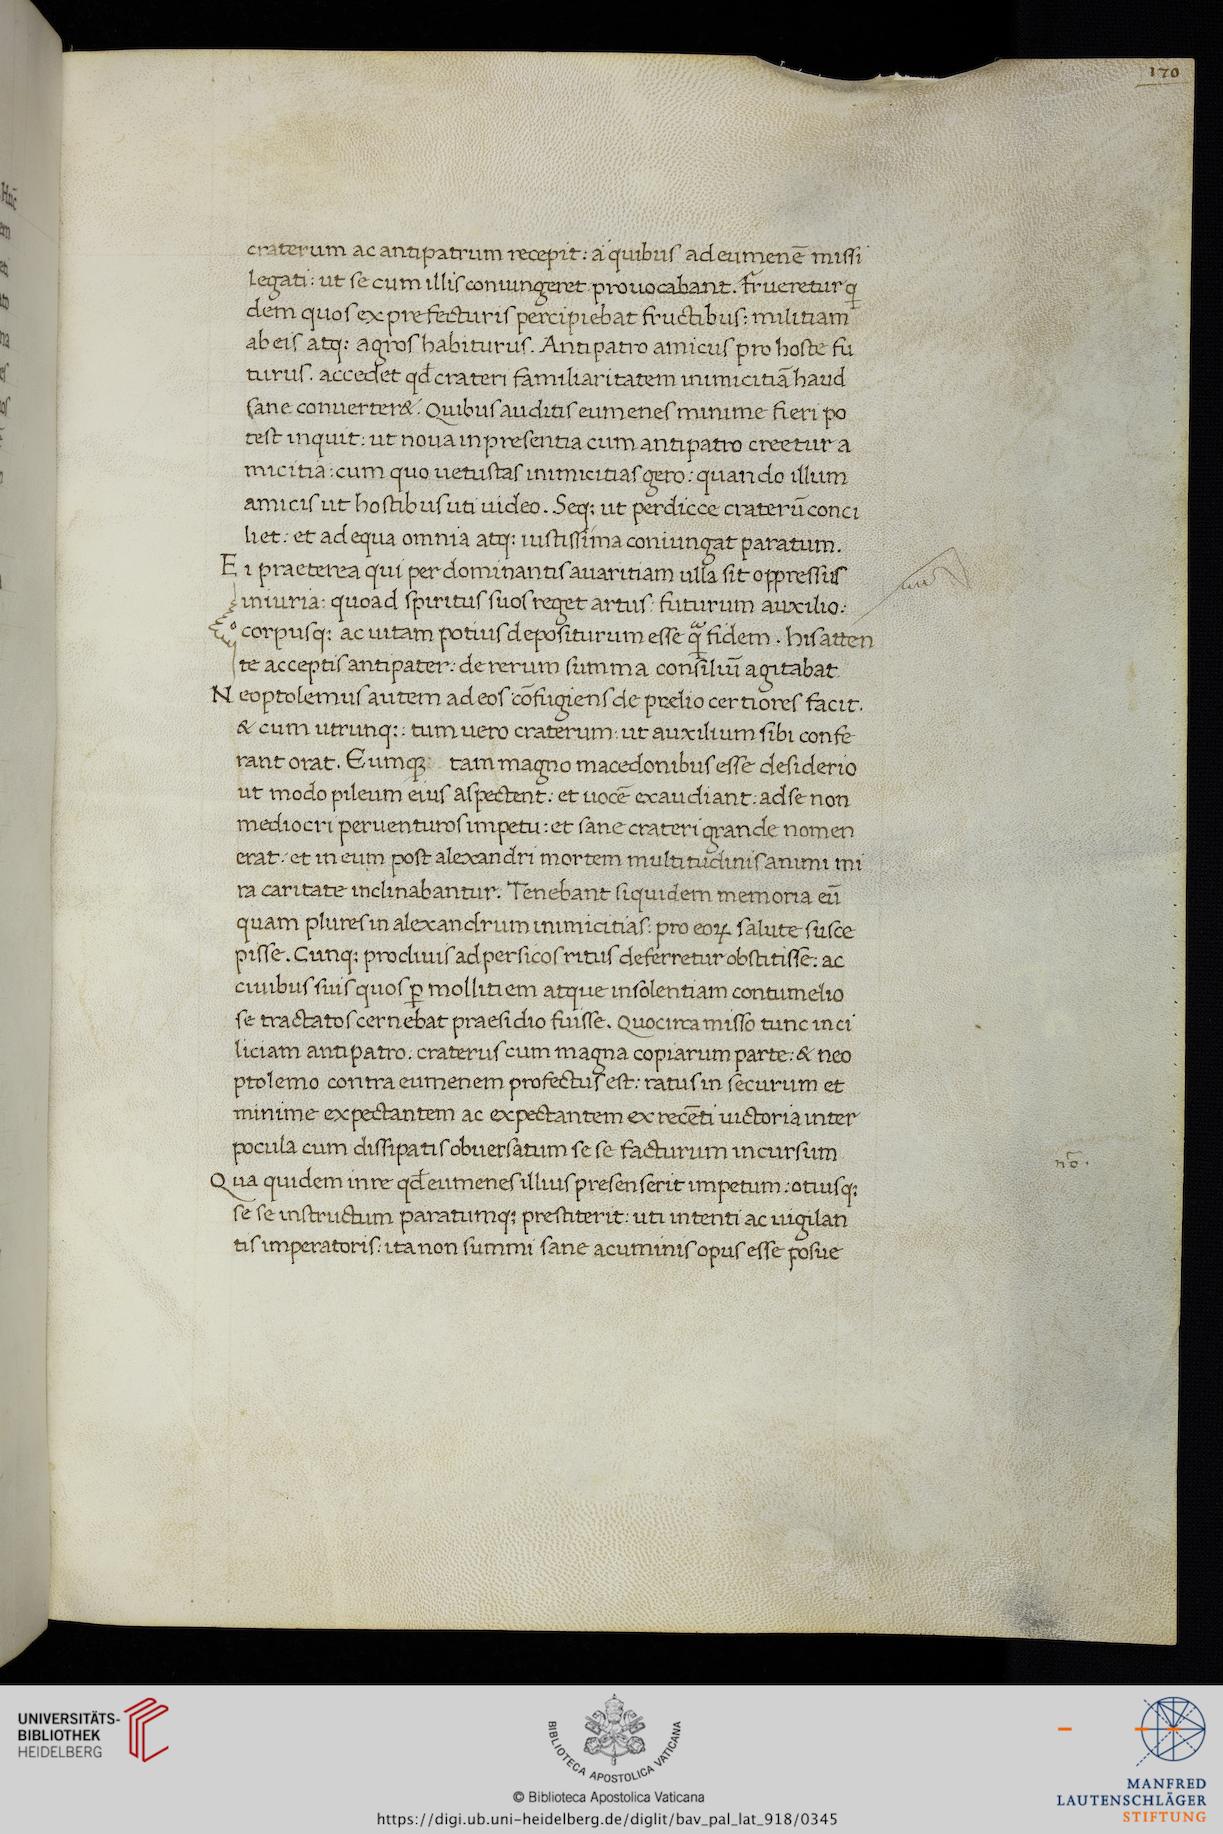 170
craterum ac antipatrum recepit: a quibus ad eumenē missi
legati: ut se cum illis coniungeret prouocabant. frueretur q
dem quos ex prefecturis percipiebat fructibus: militiam
ab eis atq: agros habiturus. Antipatro amicus pro hoste fu
turus. accedet qđ crateri familiaritatem inimicitiā haud
sane conuerter&. Quibus auditis eumenes minime fieri po
test inquit: ut noua in presentia cum antipatro creetur a
micitia: cum quo uetustas inimicitias gero: quando illum
amicis ut hostibus uti uideo. Seq: ut perdicce craterū conci
liet: et ad equa omnia atq: iustissima coniungat paratum.
Ei praeterea qui per dominantis auaritiam ulla sit oppressus
iniuria: quoad spiritus suos reget artus: futurum auxilio:
corpusq: ac uitam potius depositurum esse q̄ fidem. his atten
te acceptis antipater: de rerum summa consiliū agitabat
Neoptolemus autem ad eos cōfugiens de prelio certiores facit.
& cum utrunq:: tum uero craterum: ut auxilium sibi confe
rant orat. Eumq: tam magno macedonibus esse desiderio
ut modo pileum eius aspectent: et uocē exaudiant: ad se non
mediocri peruenturos impetu: et sane crateri grande nomen
erat: et in eum post alexandri mortem multitudinis animi mi
ra caritate inclinabantur. Tenebant siquidem memoria eū
quam plures in alexandrum inimicitias: pro eoꝝ salute susce
pisse. Cunq: procliuis ad persicos ritus deferretur obstitisse: ac
ciuibus suis quos ꝑ mollitiem atque insolentiam contumelio
se tractatos cernebat praesidio fuisse. Quocirca misso tunc in ci
liciam antipatro: craterus cum magna copiarum parte: & neo
ptolemo contra eumenem profectus est: ratus in securum et
minime expectantem ac expectantem ex recēti uictoria inter
pocula cum dissipatis obuersatum se se facturum incursum
Qua quidem in re qđ eumenes illius presenserit impetum: otiusq:
se se instructum paratumq: prestiterit: uti intenti ac uigilan
tis imperatoris: ita non summi sane acuminis opus esse posue
nō.
UNIVERSITÄTS-
BIBLIOTHEK
HEIDELBERG
BIBLIOTECA APOSTOLICA VATICANA
© Biblioteca Apostolica Vaticana
https://digi.ub.uni-heidelberg.de/diglit/bav_pal_lat_918/0345
MANFRED
LAUTENSCHLÄGER
STIFTUNG